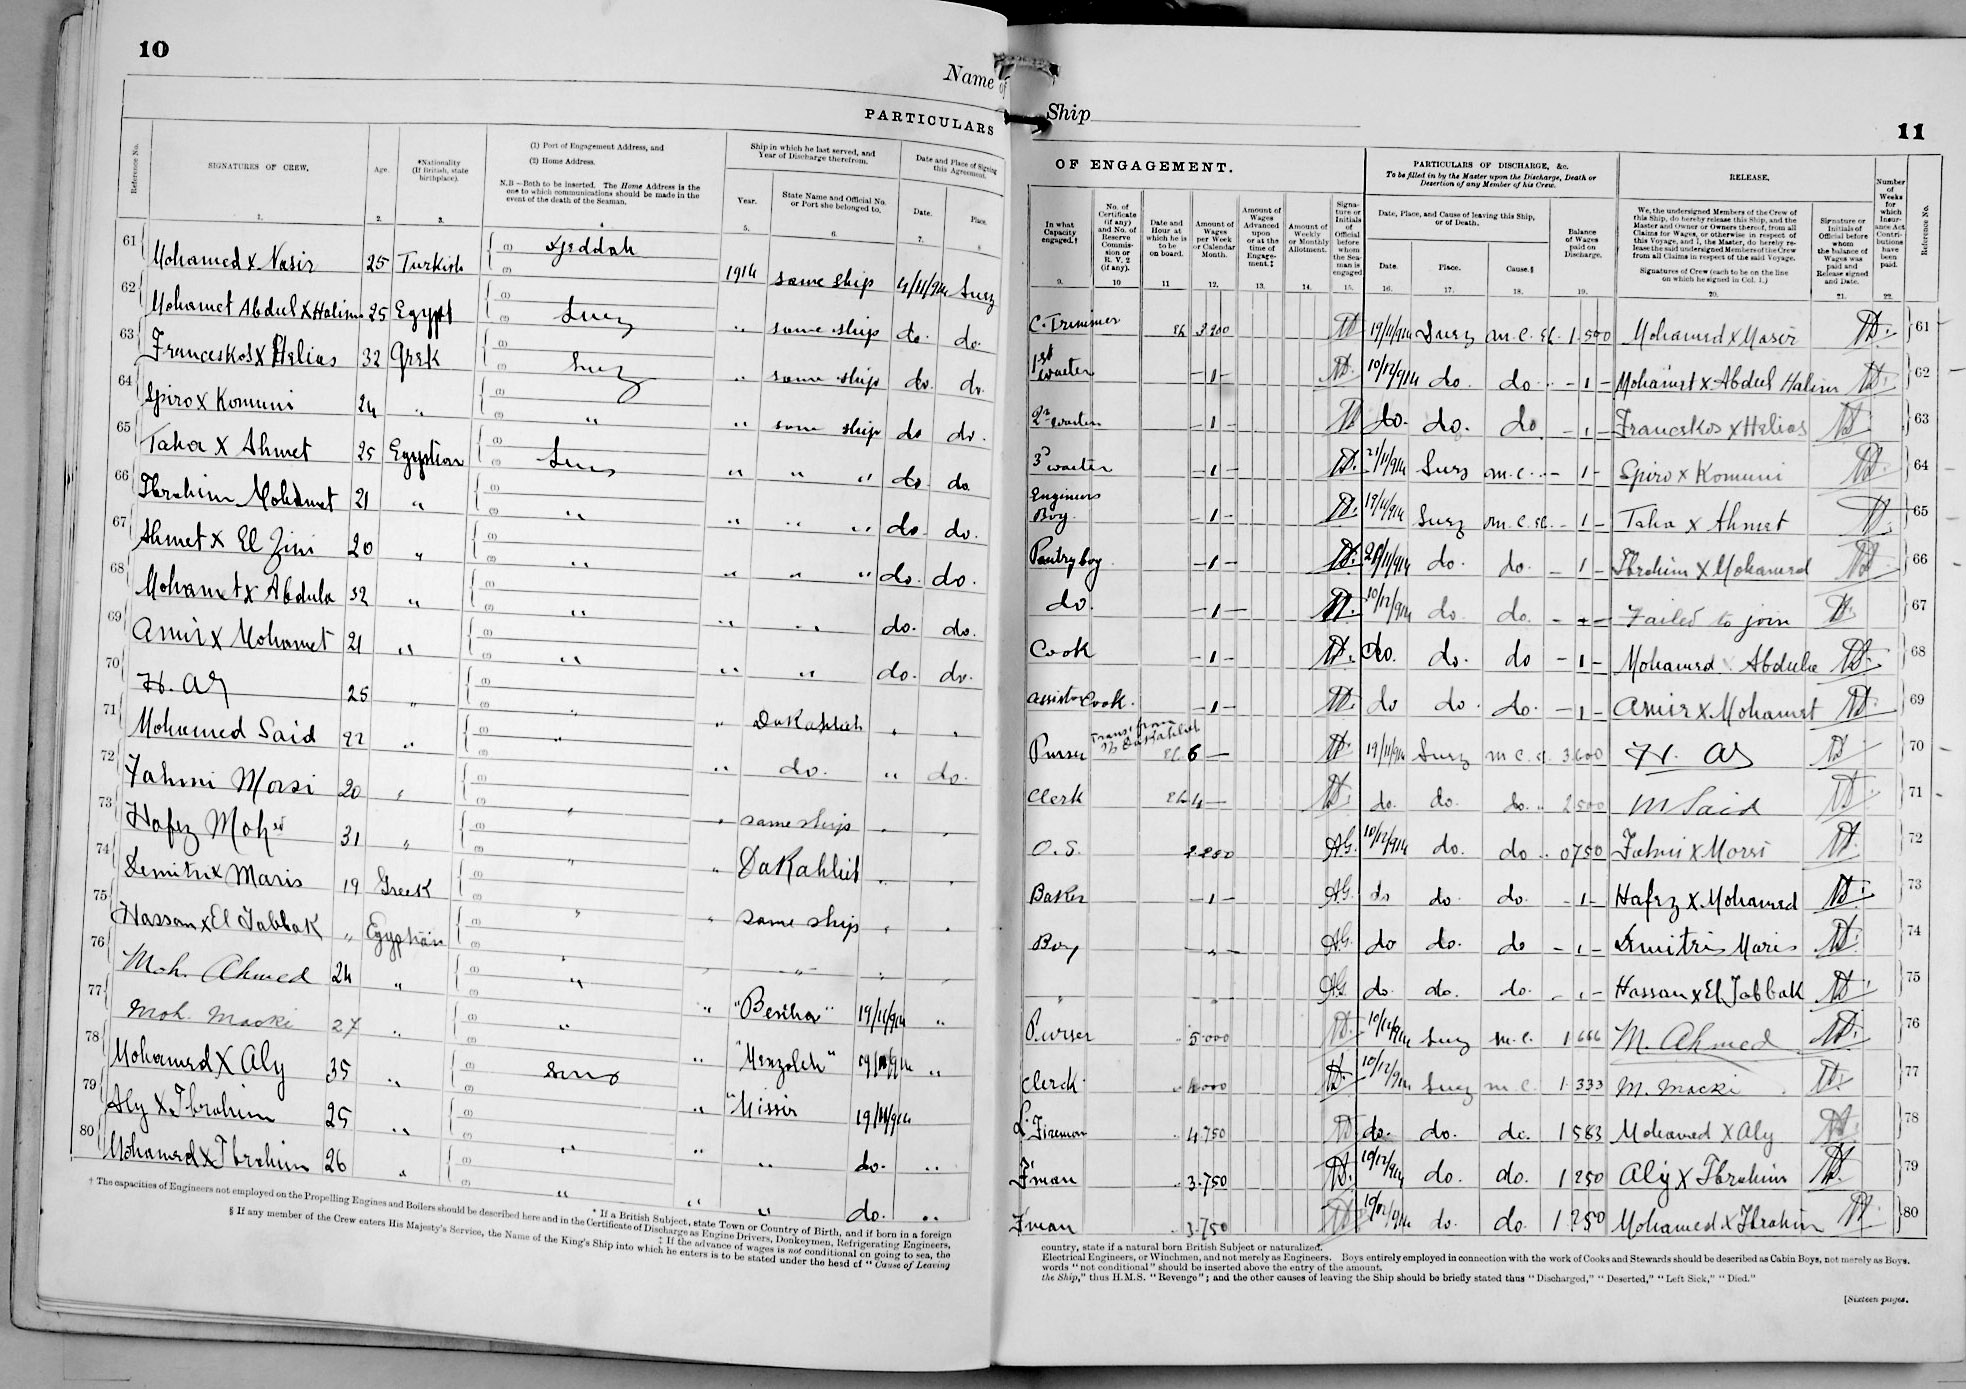 10
Name of
PARTICULARS
Reference No.
SIGNATURES OF CREW.
1.
Age.
2.
*Nationality
(If British, state
birthplace).
3.
(1) Port of Engagement Address, and
(2) Home Address.
N.B.—Both to be inserted. The Home Address is the
one to which communications should be made in the
event of the death of the Seaman.
4
Ship in which he last served, and
Year of Discharge therefrom.
Year.
5.
State Name and Official No.
or Port she belonged to.
6.
Date and Place of Signing
this Agreement.
Date.
Place.
7.
61 Mohamed x Nasir 25 Turkish (1) Djeddah (2) 1914 same ship 4/11/914 Suez
62 Mohamet Abdul x Halim 25 Egypt (1) Suez (2) " same ship do. do.
63 Franceskos x Helias 32 Grek (1) Suez (2) " same ship do. do.
64 Spiro x Komuni 24 " (1) " (2) " same ship do do.
65 Taha x Ahmet 25 Egyptian (1) Suez (2) " " " do. do.
66 Ibrahim Mohamet 21 " (1) " (2) " " " do. do.
67 Ahmet x El Zini 20 " (1) " (2) " " " do. do.
68 Mohamet x Abdula 32 " (1) " (2) " " do. do.
69 Amir x Mohamet 21 " (1) " (2) " " do. do.
70 H. Aly 25 " (1) " (2) " Dakahlieh " "
71 Mohamed Said 22 " (1) " (2) " do. " do.
72 Fahmi Morsi 20 " (1) " (2) " same ship " "
73 Hafez Mohed 31 " (1) " (2) " Dakahlieh " "
74 Demitri x Maris 19 Greek (1) " (2) " same ship " "
75 Hassan x El Tabbak " Egyptian (1) " (2) " " " "
76 Moh. Ahmed 24 " (1) " (2) " "Beriha" 19/11/914 "
77 Moh. Macki 27 " (1) " (2) " "Menzaleh" 19/11/914 "
78 Mohamed x Aly 35 " (1) Suez (2) " "Missir 19/11/914
79 Aly x Ibrahim 25 " (1) " (2) " " do. "
80 Mohamed x Ibrahim 26 " (1) " (2) " " do. "
* If a British Subject, state Town or Country of Birth, and if born in a foreign
† The capacities of Engineers not employed on the Propelling Engines and Boilers should be described here and in the Certificate of Discharge as Engine Drivers, Donkeymen, Refrigerating Engineers,
‡ If the advance of wages is not conditional on going to sea, the
§ If any member of the Crew enters His Majesty's Service, the Name of the King's Ship into which he enters is to be stated under the head of "Cause of Leaving
Ship
11
OF ENGAGEMENT.
In what
Capacity
engaged.†
9.
No. of
Certificate
(if any)
and No. of
Reserve
Commis-
sion or
R. V. 2
(if any).
10
Date and
Hour at
which he is
to be
on board.
11
Amount of
Wages
per Week
or Calendar
Month.
12.
Amount of
Wages
Advanced
upon
or at the
time of
Engage-
ment.‡
13.
Amount of
Weekly
or Monthly
Allotment.
14.
Signa-
ture or
Initials
of
Official
before
whom
the Sea-
man is
engaged
15.
PARTICULARS OF DISCHARGE, &c.
To be filled in by the Master upon the Discharge, Death or
Desertion of any Member of his Crew.
Date, Place, and Cause of leaving this Ship,
or of Death.
Date.
16.
Place.
17.
Cause.§
18.
Balance
of Wages
paid on
Discharge.
19.
RELEASE.
We, the undersigned Members of the Crew of
this Ship, do hereby release this Ship, and the
Master and Owner or Owners thereof, from all
Claims for Wages, or otherwise in respect of
this Voyage, and I, the Master, do hereby re-
lease the said undersigned Members of the Crew
from all Claims in respect of the said Voyage.
Signatures of Crew (each to be on the line
on which he signed in Col. 1.)
20.
Signature or
Initials of
Official before
whom
the balance of
Wages was
paid and
Release signed
and Date.
21.
Number
of
Weeks
for
which
Insur-
ance Act
Contri-
butions
have
been
paid.
22.
Reference No.
C. Trimmer 3 200 19/11/914 Suez M.C. 1.500 Mohamed x Nasir 61
1st waiter — 1 — 10/12/914 do. do. — 1 — Mohamet x Abdul Halim 62
2n waiter — 1 — do. do. do — 1 — Franceskos x Helias 63
3d waiter — 1 — 21/11/914 Suez M.C. — 1 — Spiro x Komuni 64
Engineers Boy — 1 — 19/11/914 Suez M.C. — 1 — Taha x Ahmet 65
Pantry boy — 1 — 28/11/914 do. do. — 1 — Ibrahim x Mohamed 66
do. — 1 — 10/12/914 do. do. — 1 — Failed to join 67
Cook — 1 — do. do. do — 1 — Mohamed x Abdula 68
assistor Cook. — 1 — do do. do. — 1 — Amir x Mohamet 69
Purser Transf from Dakahlieh 6 — 19/11/914 Suez M.C. 3.600 H. Aly 70
Clerk 4 — do. do. do. 2500 M Said 71
O.S. 2.250 A.G. 10/12/914 do. do 0750 Fahmi x Morsi 72
Baker — 1 — A.G. do do. do. — 1 — Hafez x Mohamed 73
Boy — " — A.G. do do. do — 1 — Dmitris Maris 74
" A.G. do. do. do. — 1 — Hassan x El Tabbak 75
Purser 5.000 10/12/914 Suez M.C. 1 666 M. Ahmed 76
Clerk. 4.000 10/12/914 Suez M.C. 1.333 M. Macki 77
L. Fireman 4.750 do. do. do. 1583 Mohamed x Aly 78
F'man 3.750 10/12/914 do. do. 1250 Aly x Ibrahim 79
F'man 3.750 10/12/914 do. do. 1250 Mohamed x Ibrahim 80
country, state if a natural born British Subject or naturalized.
Electrical Engineers, or Winchmen, and not merely as Engineers. Boys entirely employed in connection with the work of Cooks and Stewards should be described as Cabin Boys, not merely as Boys.
words "not conditional" should be inserted above the entry of the amount.
the Ship," thus H.M.S. "Revenge"; and the other causes of leaving the Ship should be briefly stated thus "Discharged," "Deserted," "Left Sick," "Died."
[Sixteen pages.